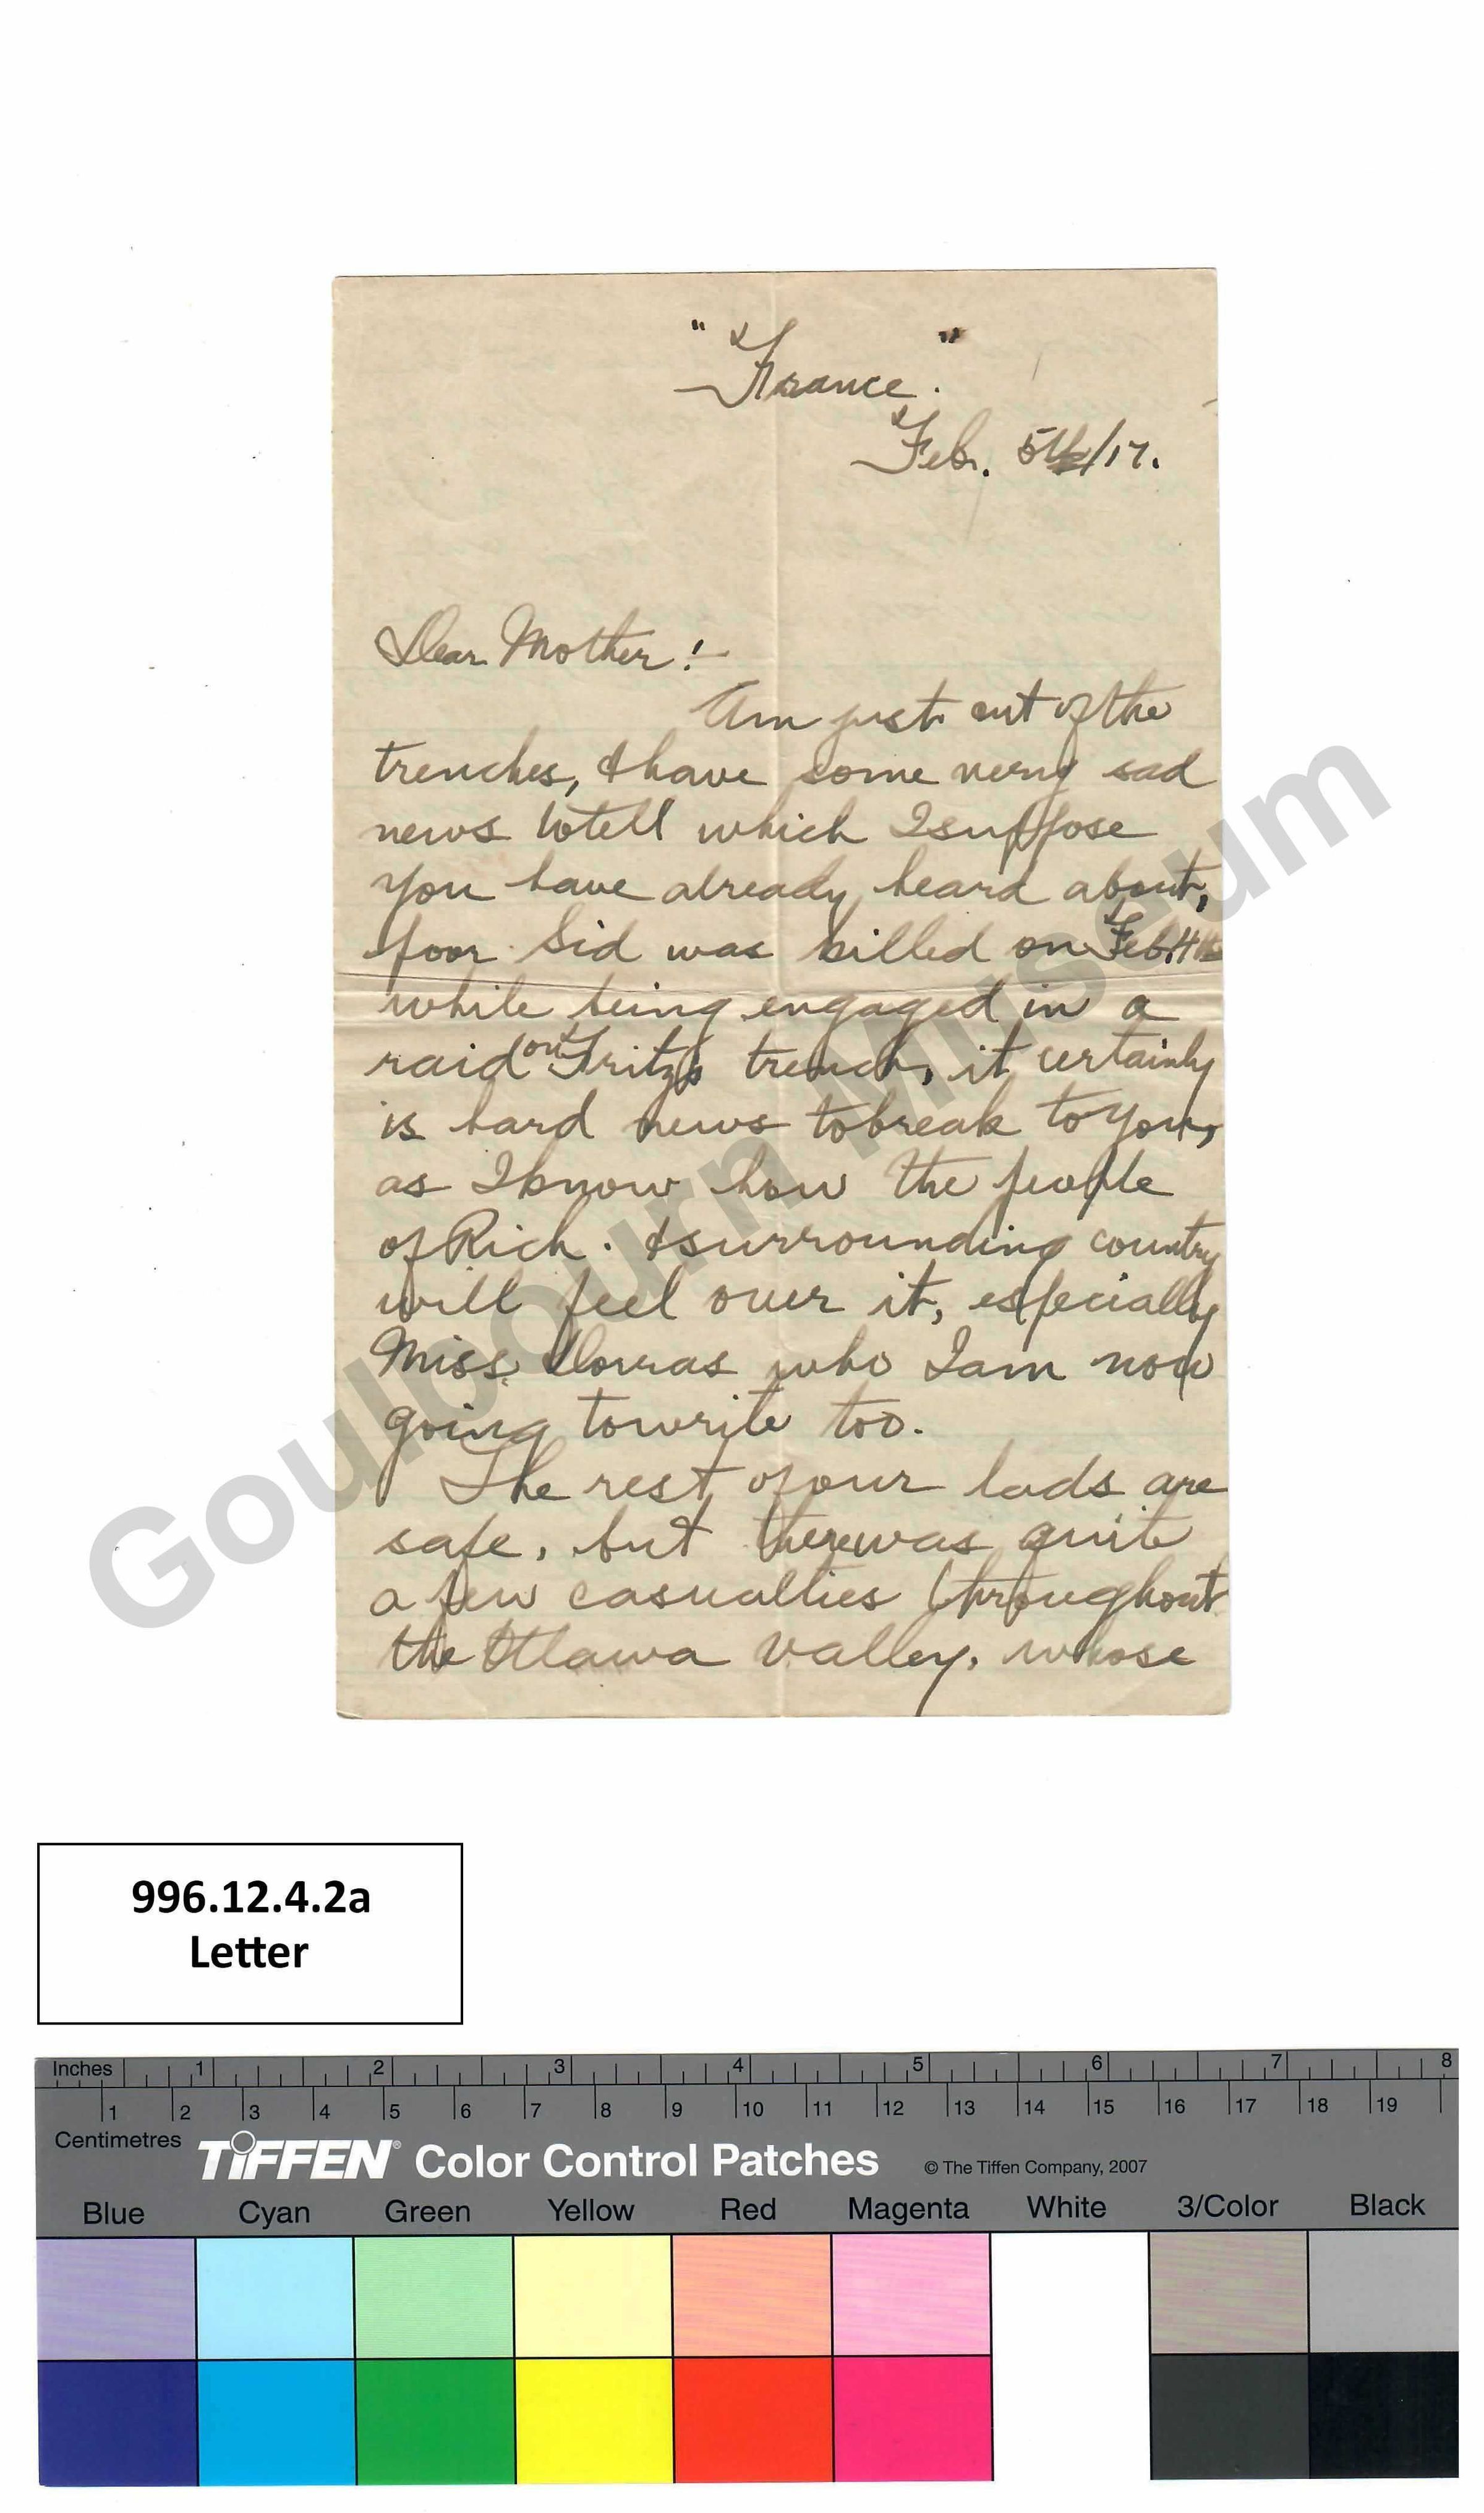 " France. "
Feb. 5th/17.
Dear Mother!-
Am just out of the
trenches, & have some very sad
news to tell which I suppose
you have already heard about,
poor Sid was killed on Feb. 4th
while being engaged in a
raid on Fritz's trench, it certainly
is hard news to break to you,
as I know how the people
of Rich. & surrounding country
will feel over it, especially
Miss. who I am now
going to write too.
The rest of our lads are
safe, but there was quite
a few casualties throughout
the Ottawa Valley, whose
Goulbourn Museum
996.12.4.2a
Letter
Inches 1 2 3 4 5 6 7 8
1 2 3 4 5 6 7 8 9 10 11 12 13 14 15 16 17 18 19
Centimetres
TIFFEN® Color Control Patches © The Tiffen Company, 2007
Blue Cyan Green Yellow Red Magenta White 3/Color Black